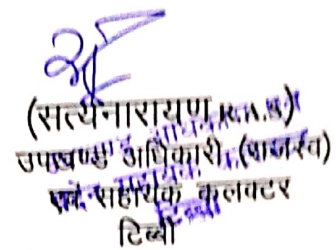 (सत्यनारायण R.A.S.)
उपखण्ड अधिकारी (राजस्व)
एवं सहायक कलक्टर
टिब्बी